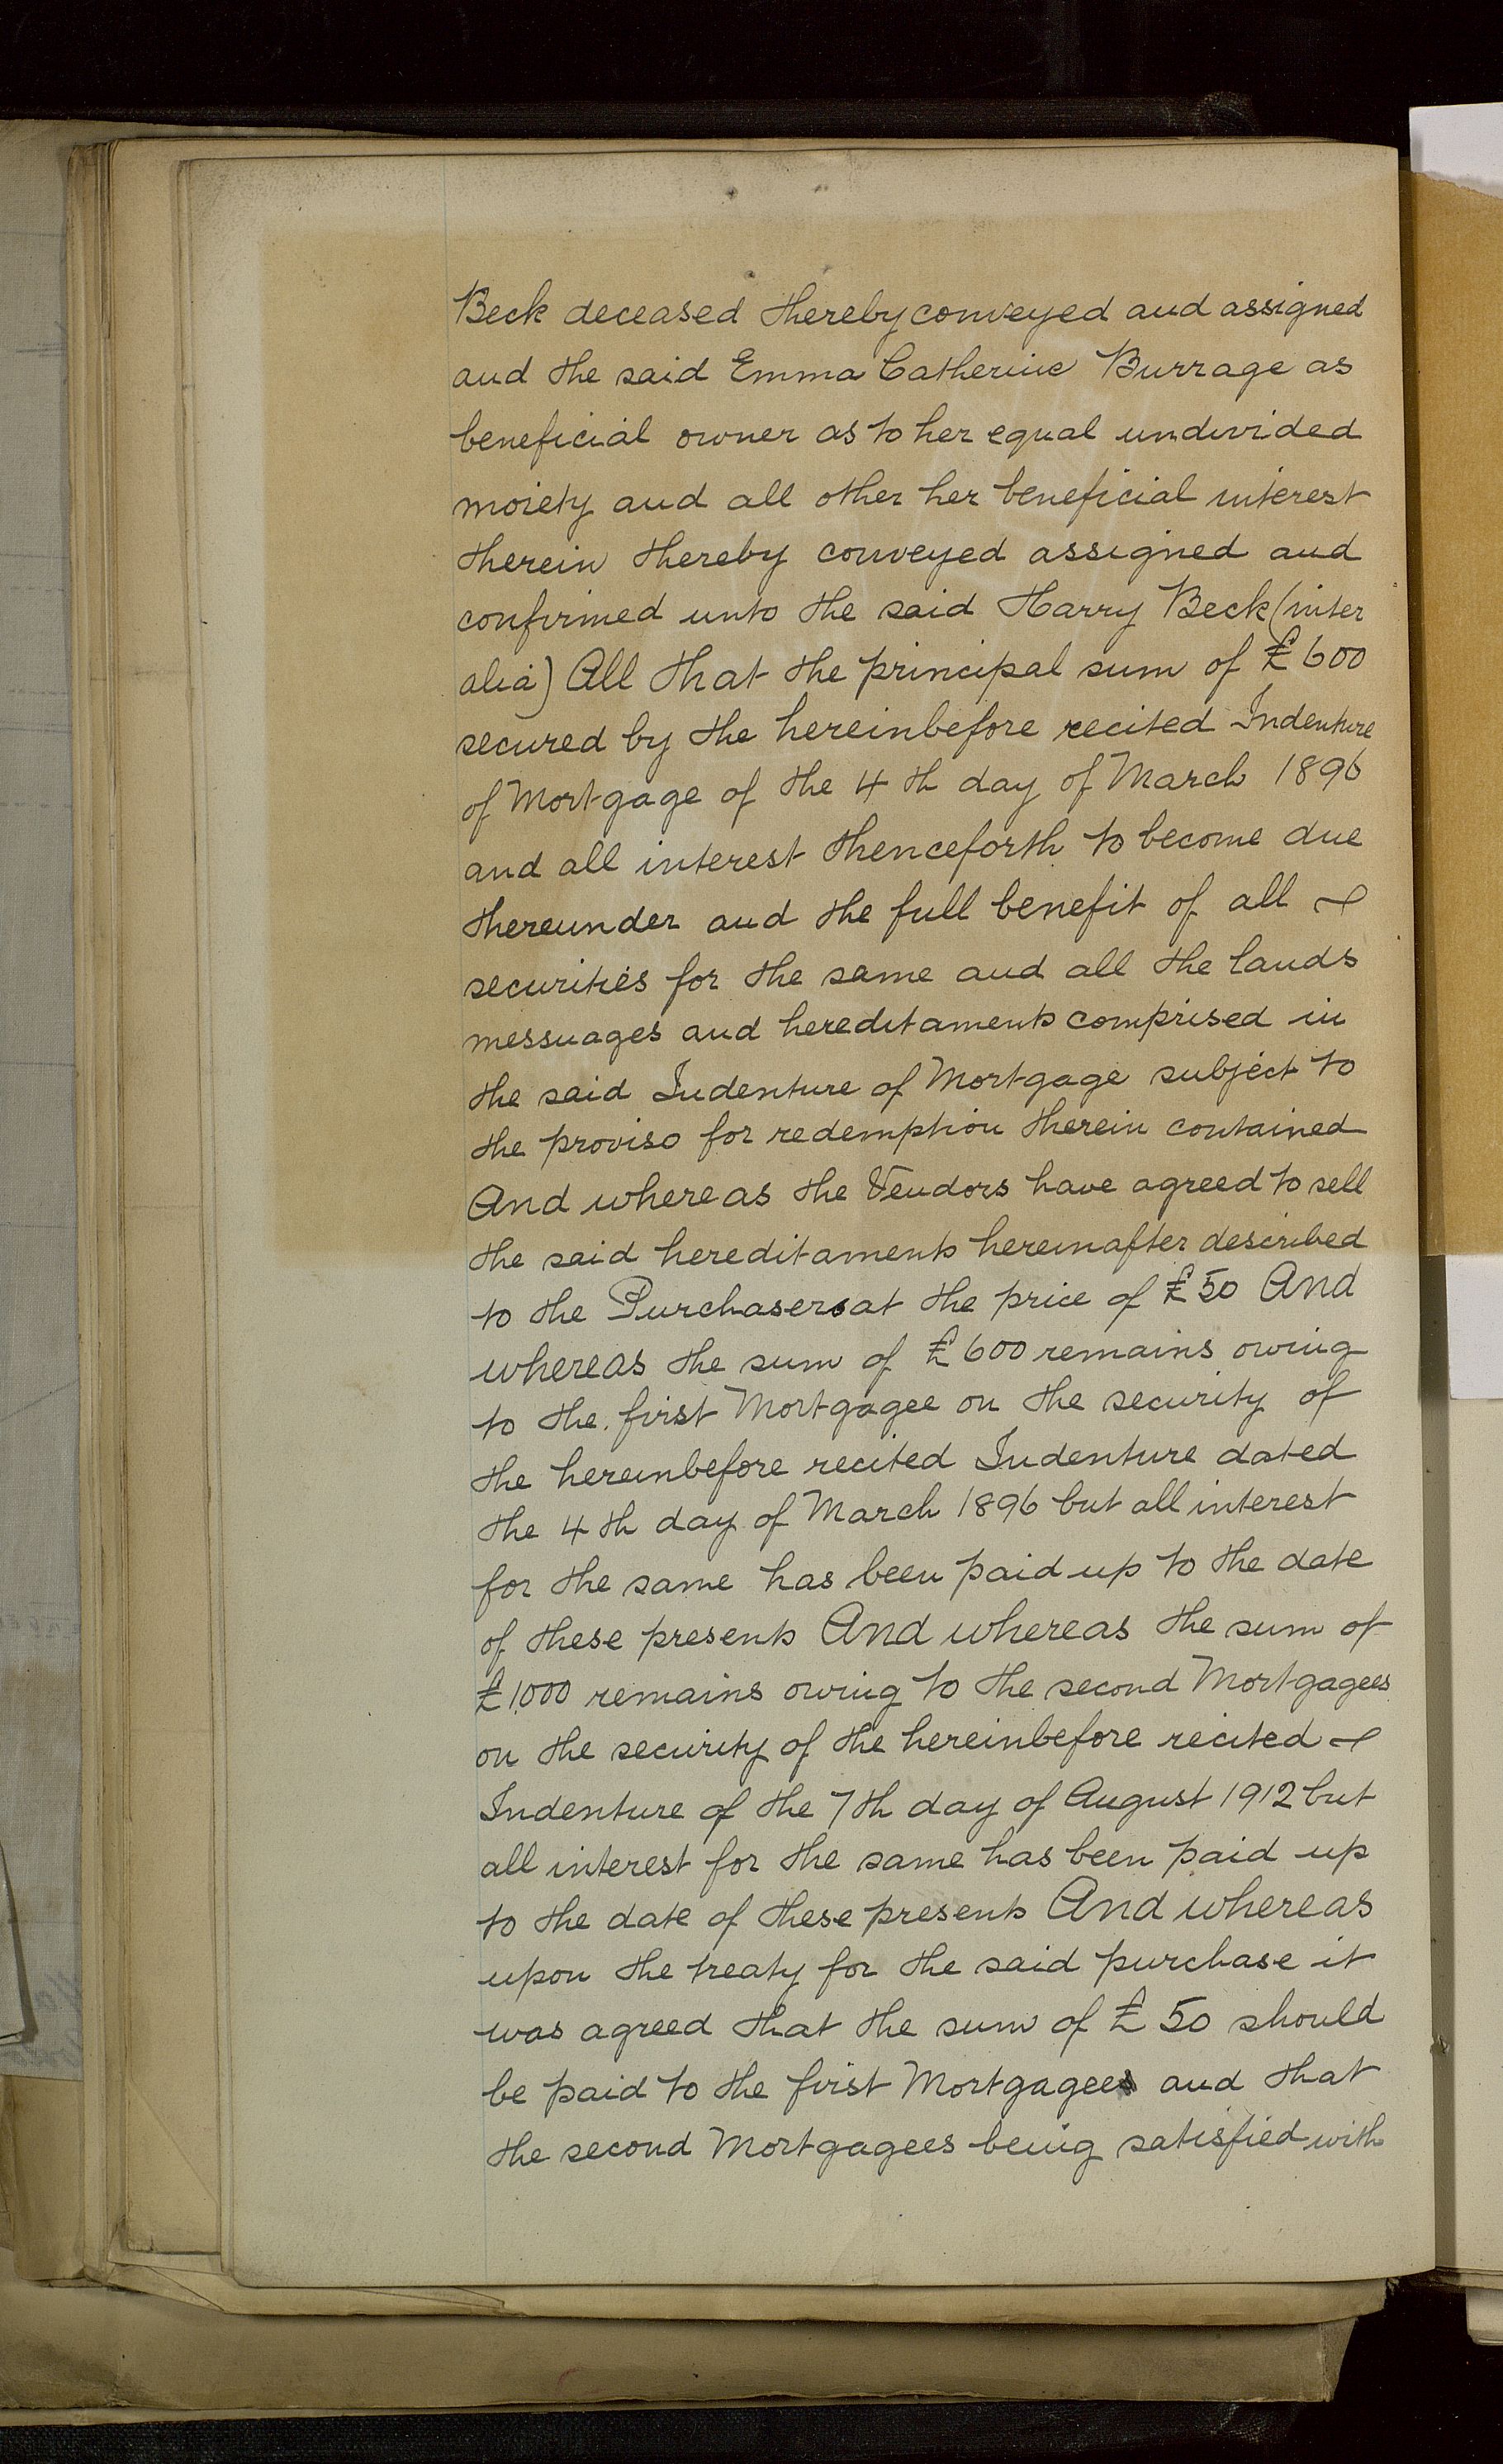 Beck deceased thereby conveyed and assigned
and the said Emma Catherine Burrage as
beneficial owner as to her equal undivided
moiety and all other her beneficial interest
therein thereby conveyed assigned and
confirmed unto the said Harry Beck (inter
alia) All that the principal sum of £600
secured by the hereinbefore recited Indenture
of Mortgage of the 4th day of March 1896
and all interest thenceforth to become due
thereunder and the full benefit of all
securities for the same and all the lands
messuages and hereditaments comprised in
the said Indenture of Mortgage subject to
the proviso for redemption therein contained
And whereas the Vendors have agreed to sell
the said hereditaments hereinafter described
to the Purchasers at the price of £50 And
whereas the sum of £600 remains owing
to the first Mortgagee on the security of
the hereinbefore recited Indenture dated
the 4th day of March 1896 but all interest
for the same has been paid up to the date
of these presents And whereas the sum of
£1,000 remains owing to the second Mortgagees
on the security of the hereinbefore recited
Indenture of the 7th day of August 1912 but
all interest for the same has been paid up
to the date of these presents And whereas
upon the treaty for the said purchase it
was agreed that the sum of £50 should
be paid to the first Mortgagee and that
the second Mortgagees being satisfied with